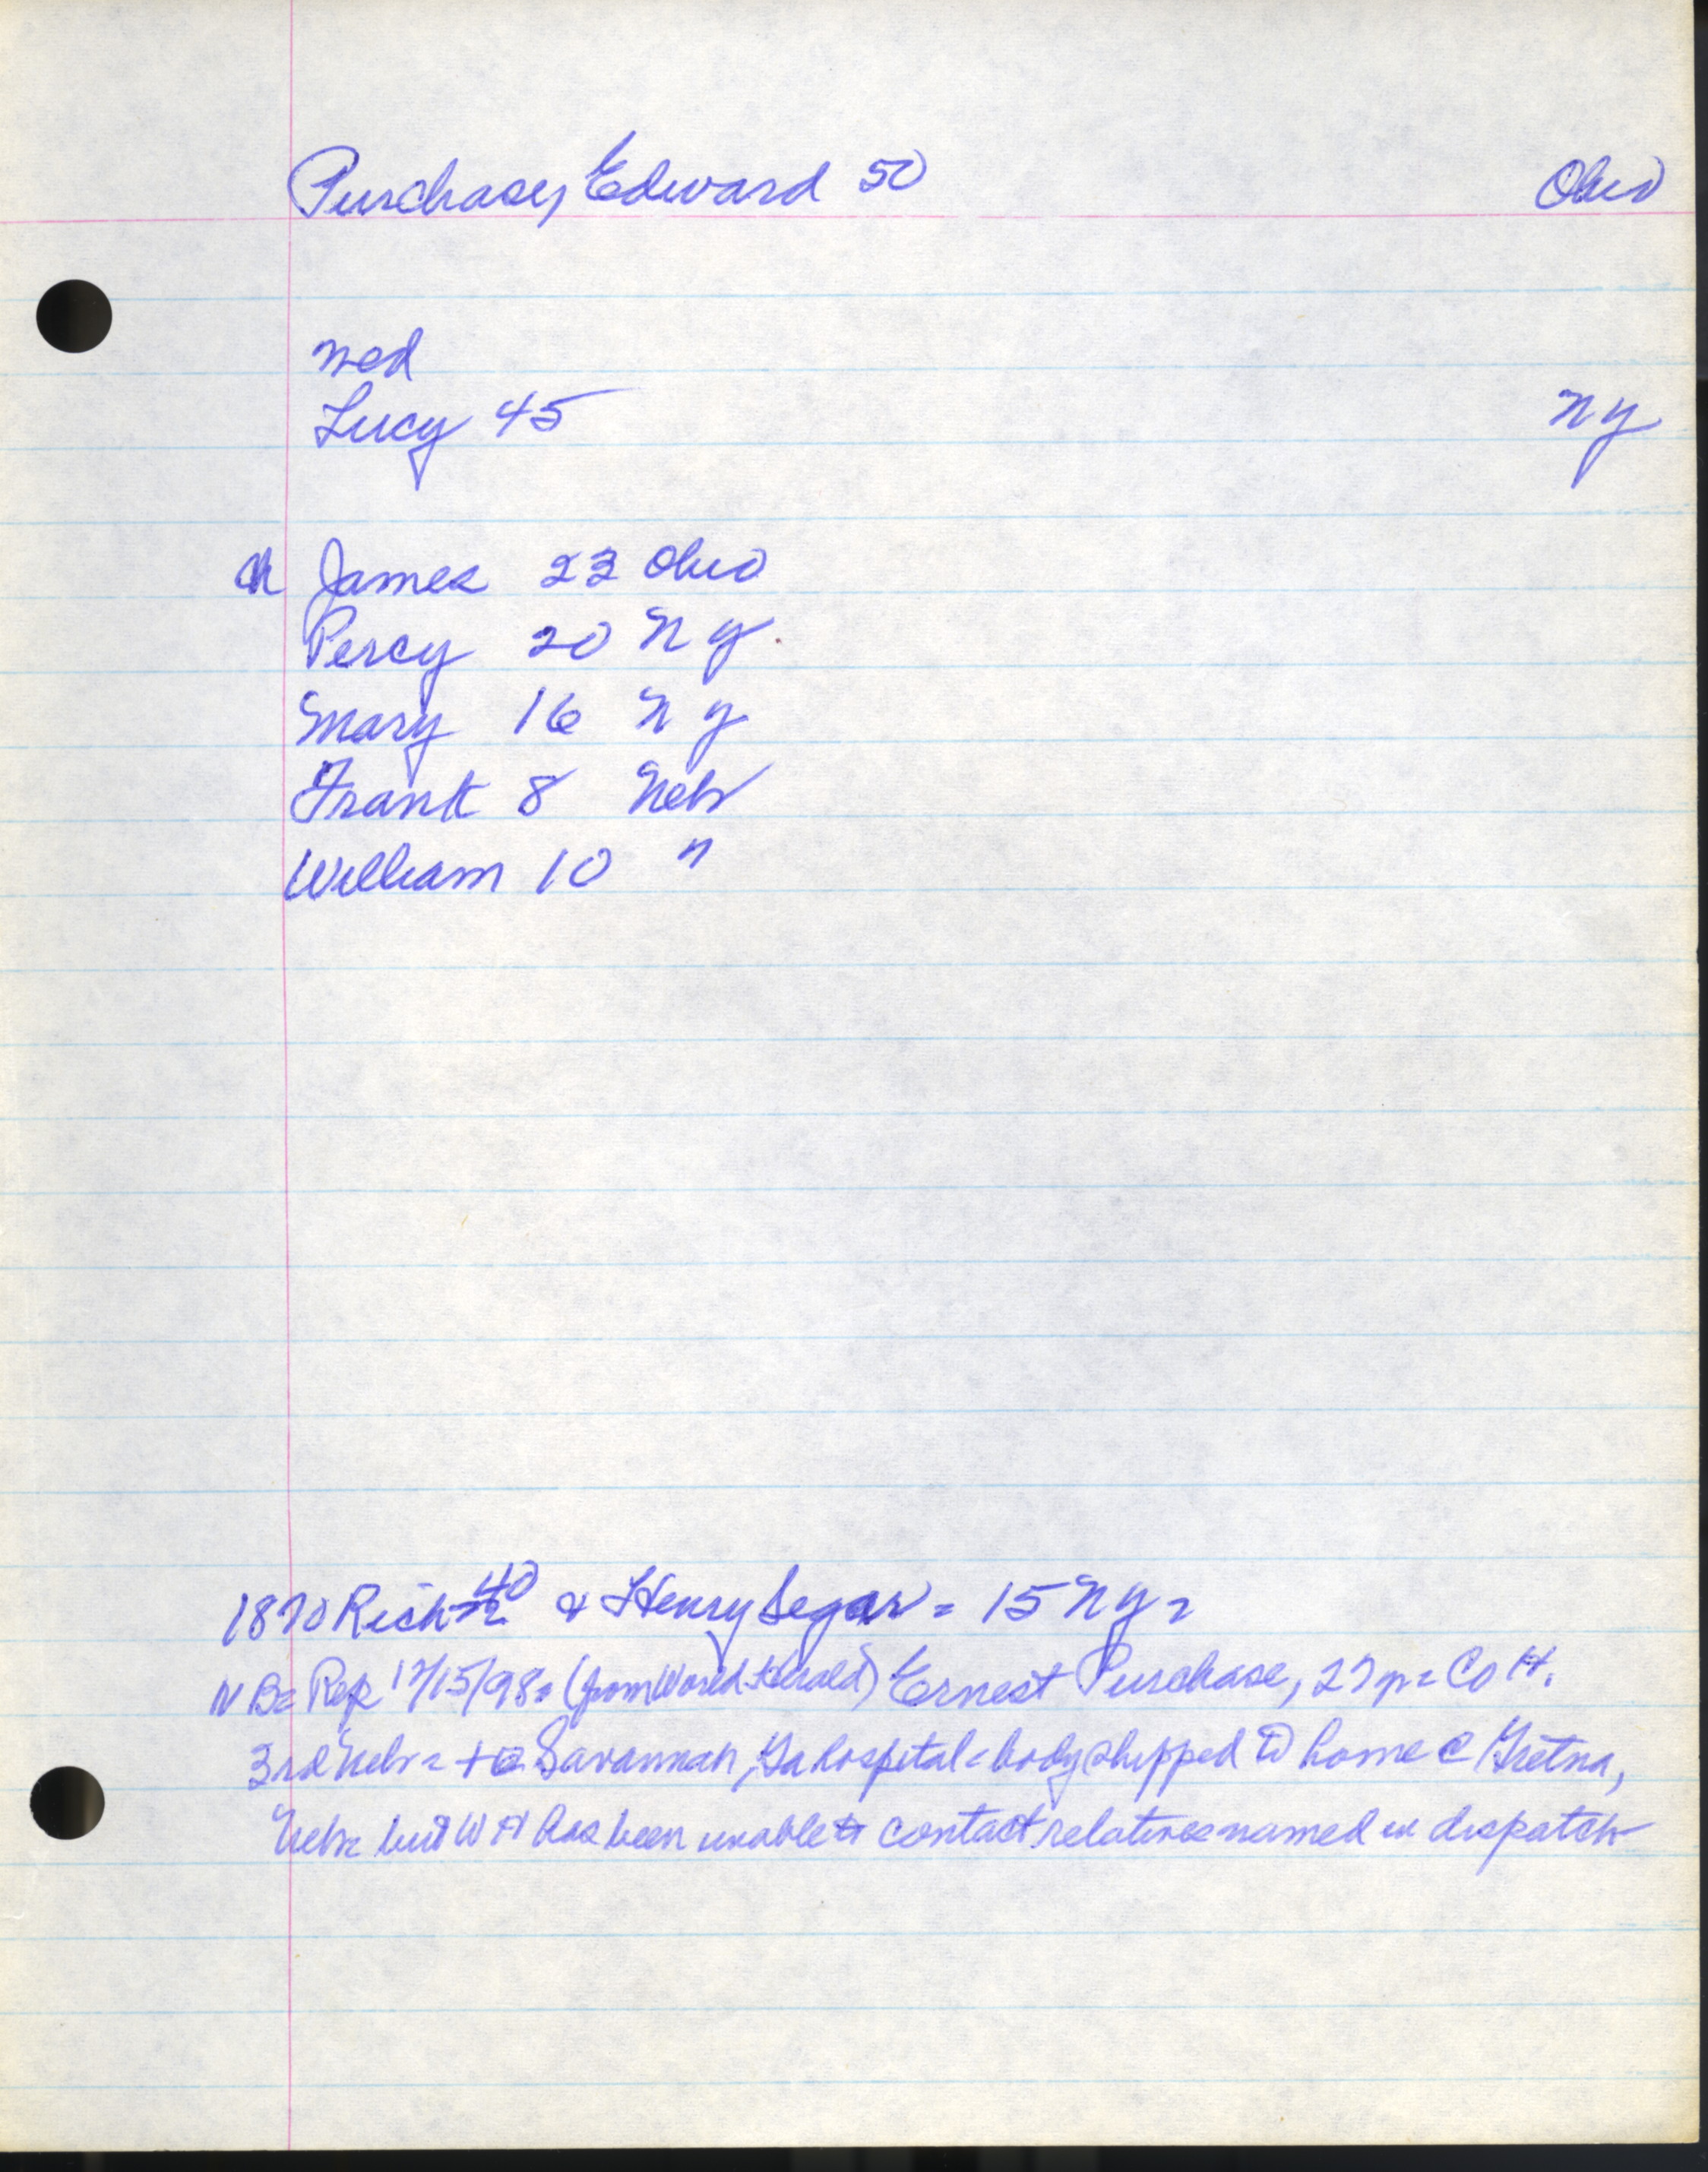 Purchase, Edward 50 Ohio
med
Lucy 45 NY
ch James 22 Ohio
Percy 20 N Y.
Mary 16 N Y
Frank 8 Nebr
William 10 "
1870 Rich 40 & Henry Segar = 15 NY =
N B = Rep 12/15/98 = (from World-Herald) Ernest Purchase, 27 yr = Co H.
3rd Nebr = + @ Savannah, Ga hospital = body shipped to home @ Gretna,
Nebr but W H has been unable to contact relatives named in dispatch